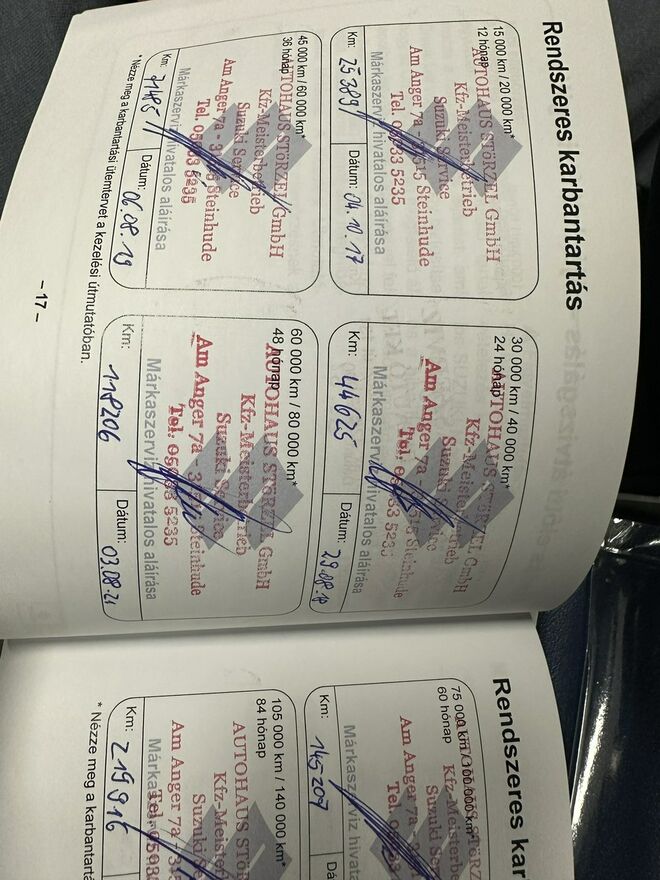 Rendszeres karbantartás
15 000 km / 20 000 km*
12 hónap
AUTOHAUS STÖRZEL GmbH
Kfz-Meisterbetrieb
Suzuki Service
Am Anger 7a - 31515 Steinhude
Tel. 05033 5235
Márkaszerviz hivatalos aláírása
Km: 25389
Dátum: 04.10.17
30 000 km / 40 000 km*
24 hónap
AUTOHAUS STÖRZEL GmbH
Kfz-Meisterbetrieb
Suzuki Service
Am Anger 7a Steinhude
Tel. 05033 5235
Márkaszerviz hivatalos aláírása
Km: 44625
Dátum: 29.08.18
45 000 km / 60 000 km*
36 hónap
AUTOHAUS STÖRZEL GmbH
Kfz-Meisterbetrieb
Suzuki Service
Am Anger 7a - 31515 Steinhude
Tel. 05033 5235
Márkaszerviz hivatalos aláírása
Km: 71485
Dátum: 06.08.19
60 000 km / 80 000 km*
48 hónap
AUTOHAUS STÖRZEL GmbH
Kfz-Meisterbetrieb
Suzuki Service
Am Anger 7a - 31515 Steinhude
Tel. 05033 5235
Márkaszerviz hivatalos aláírása
Km: 118206
Dátum: 03.08.21
* Nézze meg a karbantartási ütemtervet a kezelési útmutatóban.
– 17 –
Rendszeres kar
75 000 km / 100 000 km*
60 hónap
STÖRZ
Kfz-Meisterbe
Suzuki Se
Am Anger 7a - 3
Tel. 05033
Márkaszerviz hivata
Km: 145207
Dá
105 000 km / 140 000 km*
84 hónap
AUTOHAUS STÖR
Kfz-Meister
Suzuki S
Am Anger 7a - 315
Tel. 05033
Márkas
Km: 219916
* Nézze meg a karbantartá